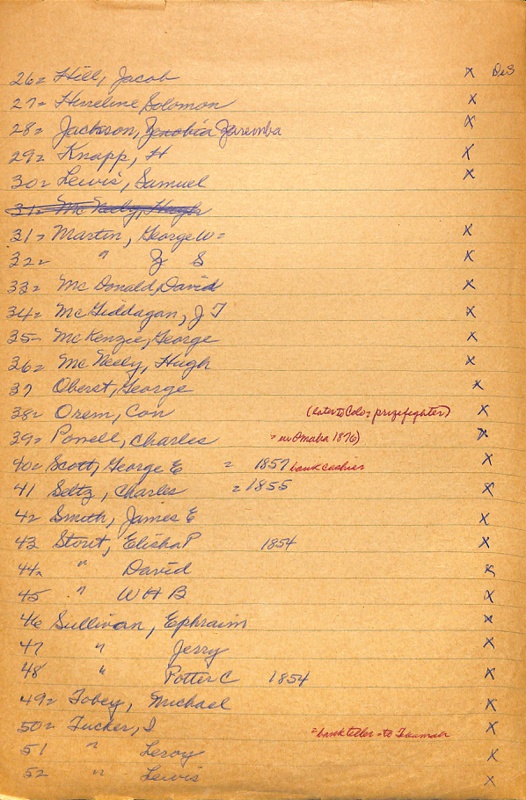 26= Hill, Jacob x DeS
27= Hineline Solomon x
28= Jackson, Zenobia Zerremba x
29= Knapp, H x
30= Lewis, Samuel x
31= McNeely, Hugh
31= Martin, George W= x
32= " Z S x
33= McDonald, David x
34= McGiddagan, J T x
35- McKenzie, George x
36= McNeely, Hugh x
37 Oberst, George x
38= Orem, Con (later to Colo= prizefighter) x
39= Powell, Charles = in Omaha 1876) x
40= Scott, George E = 1857 bank cashier x
41 Seltz, Charles = 1855 x
42 Smith, James E x
43 Stout, Elisha P 1854 x
44= " David x
45 " W H B x
46 Sullivan, Ephraim x
47 " Jerry x
48 " Potter C 1854 x
49= Tobey, Michael x
50= Tucker, I = bank teller - to x
51 " Leroy x
52 " Lewis x